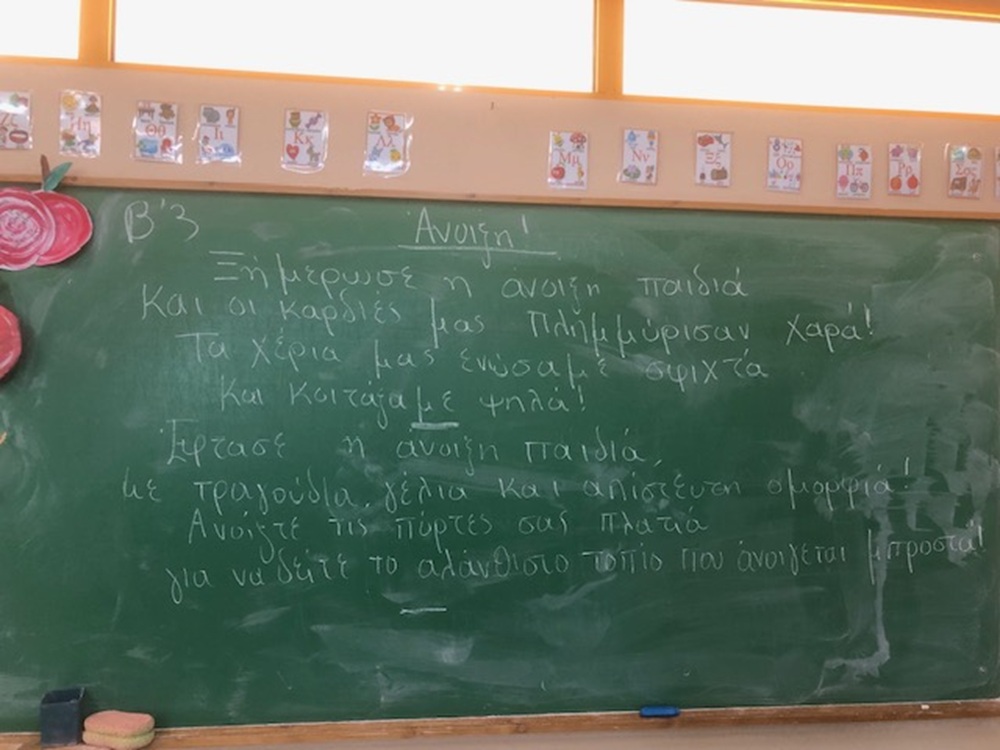 Ζζ Ηη Θθ Ιι Κκ Λλ Μμ Νν Ξξ Οο Ππ Ρρ Σσς
Β'3 Άνοιξη!
Ξημέρωσε η άνοιξη παιδιά
Και οι καρδιές μας πλημμύρισαν χαρά!
Τα χέρια μας ενώσαμε σφιχτά
Και κοιτάξαμε ψηλά!
Έφτασε η άνοιξη παιδιά,
με τραγούδια, γέλια και απίστευτη ομορφιά!
Ανοίξτε τις πόρτες σας πλατιά
για να δείτε το αλάνθιστο τοπίο που ανοίγεται μπροστά!